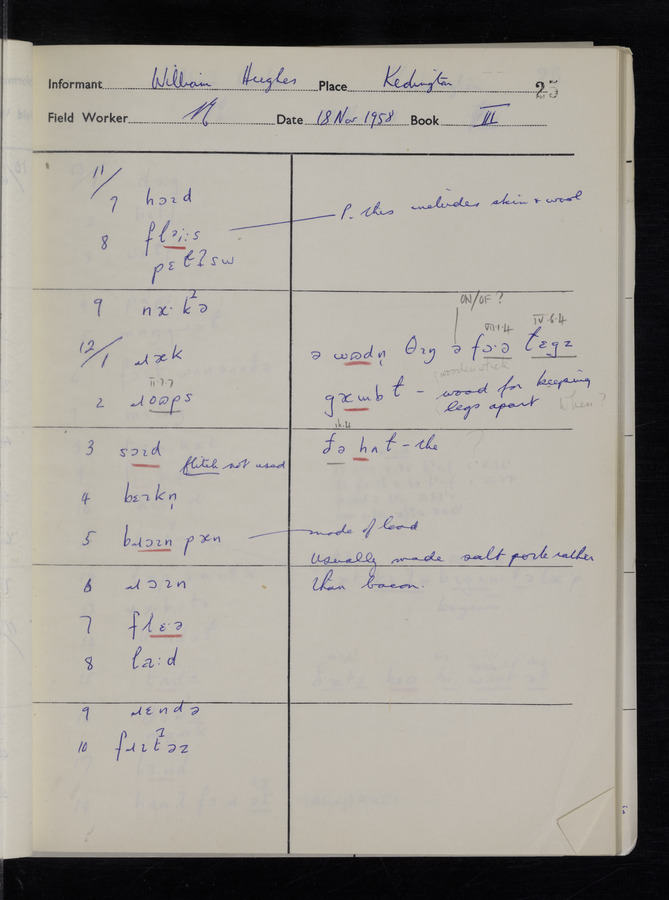 Informant William Hughes Place Kedington 25
Field Worker Date 18 Nov 1958 Book III
11/
7 hɔɪd
8 fləi:s P. this includes skin & wool
pɛtʔsw
9 nx·kʔə ON/OF?
12/ VII·1·4 IV·6·4
1 ɹæk ə wɷdn̩ θɪŋ ə fɔ·ə tɛgz
II·7·7 (wooden stick
2 ɹoɷps gæmbt – wood for keeping
legs apart When?
3 sɔɪd flitch not used ðə hʌt – the
4 beɪkn̩
5 bɹɔɪn pæn made of lead
usually made salt pork rather
6 ɹɔɪn than bacon.
7 flɛ·ə
8 la:d
9 ɹɛndə
10 fɹɪtʔəz